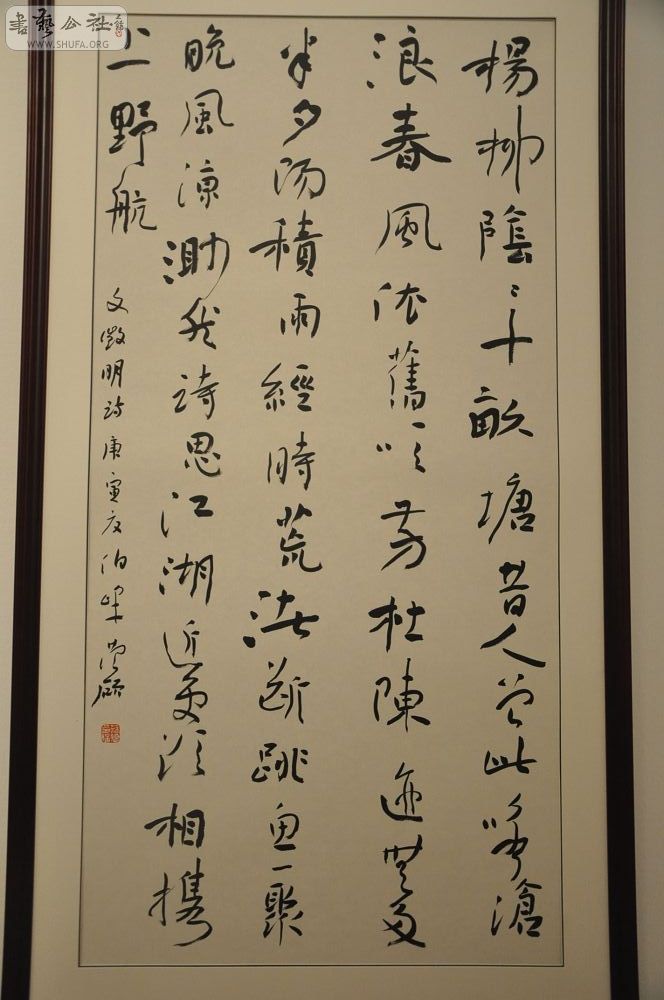 書藝公社
WWW.SHUFA.ORG
楊柳陰〻十畝塘昔人曾此咏滄
浪春風依舊吹芳杜陳迹無多
半夕陽積雨經時荒渚斷跳魚一聚
晚風涼渺然詩思江湖近更欲相攜
上野航
文徵明詩庚寅